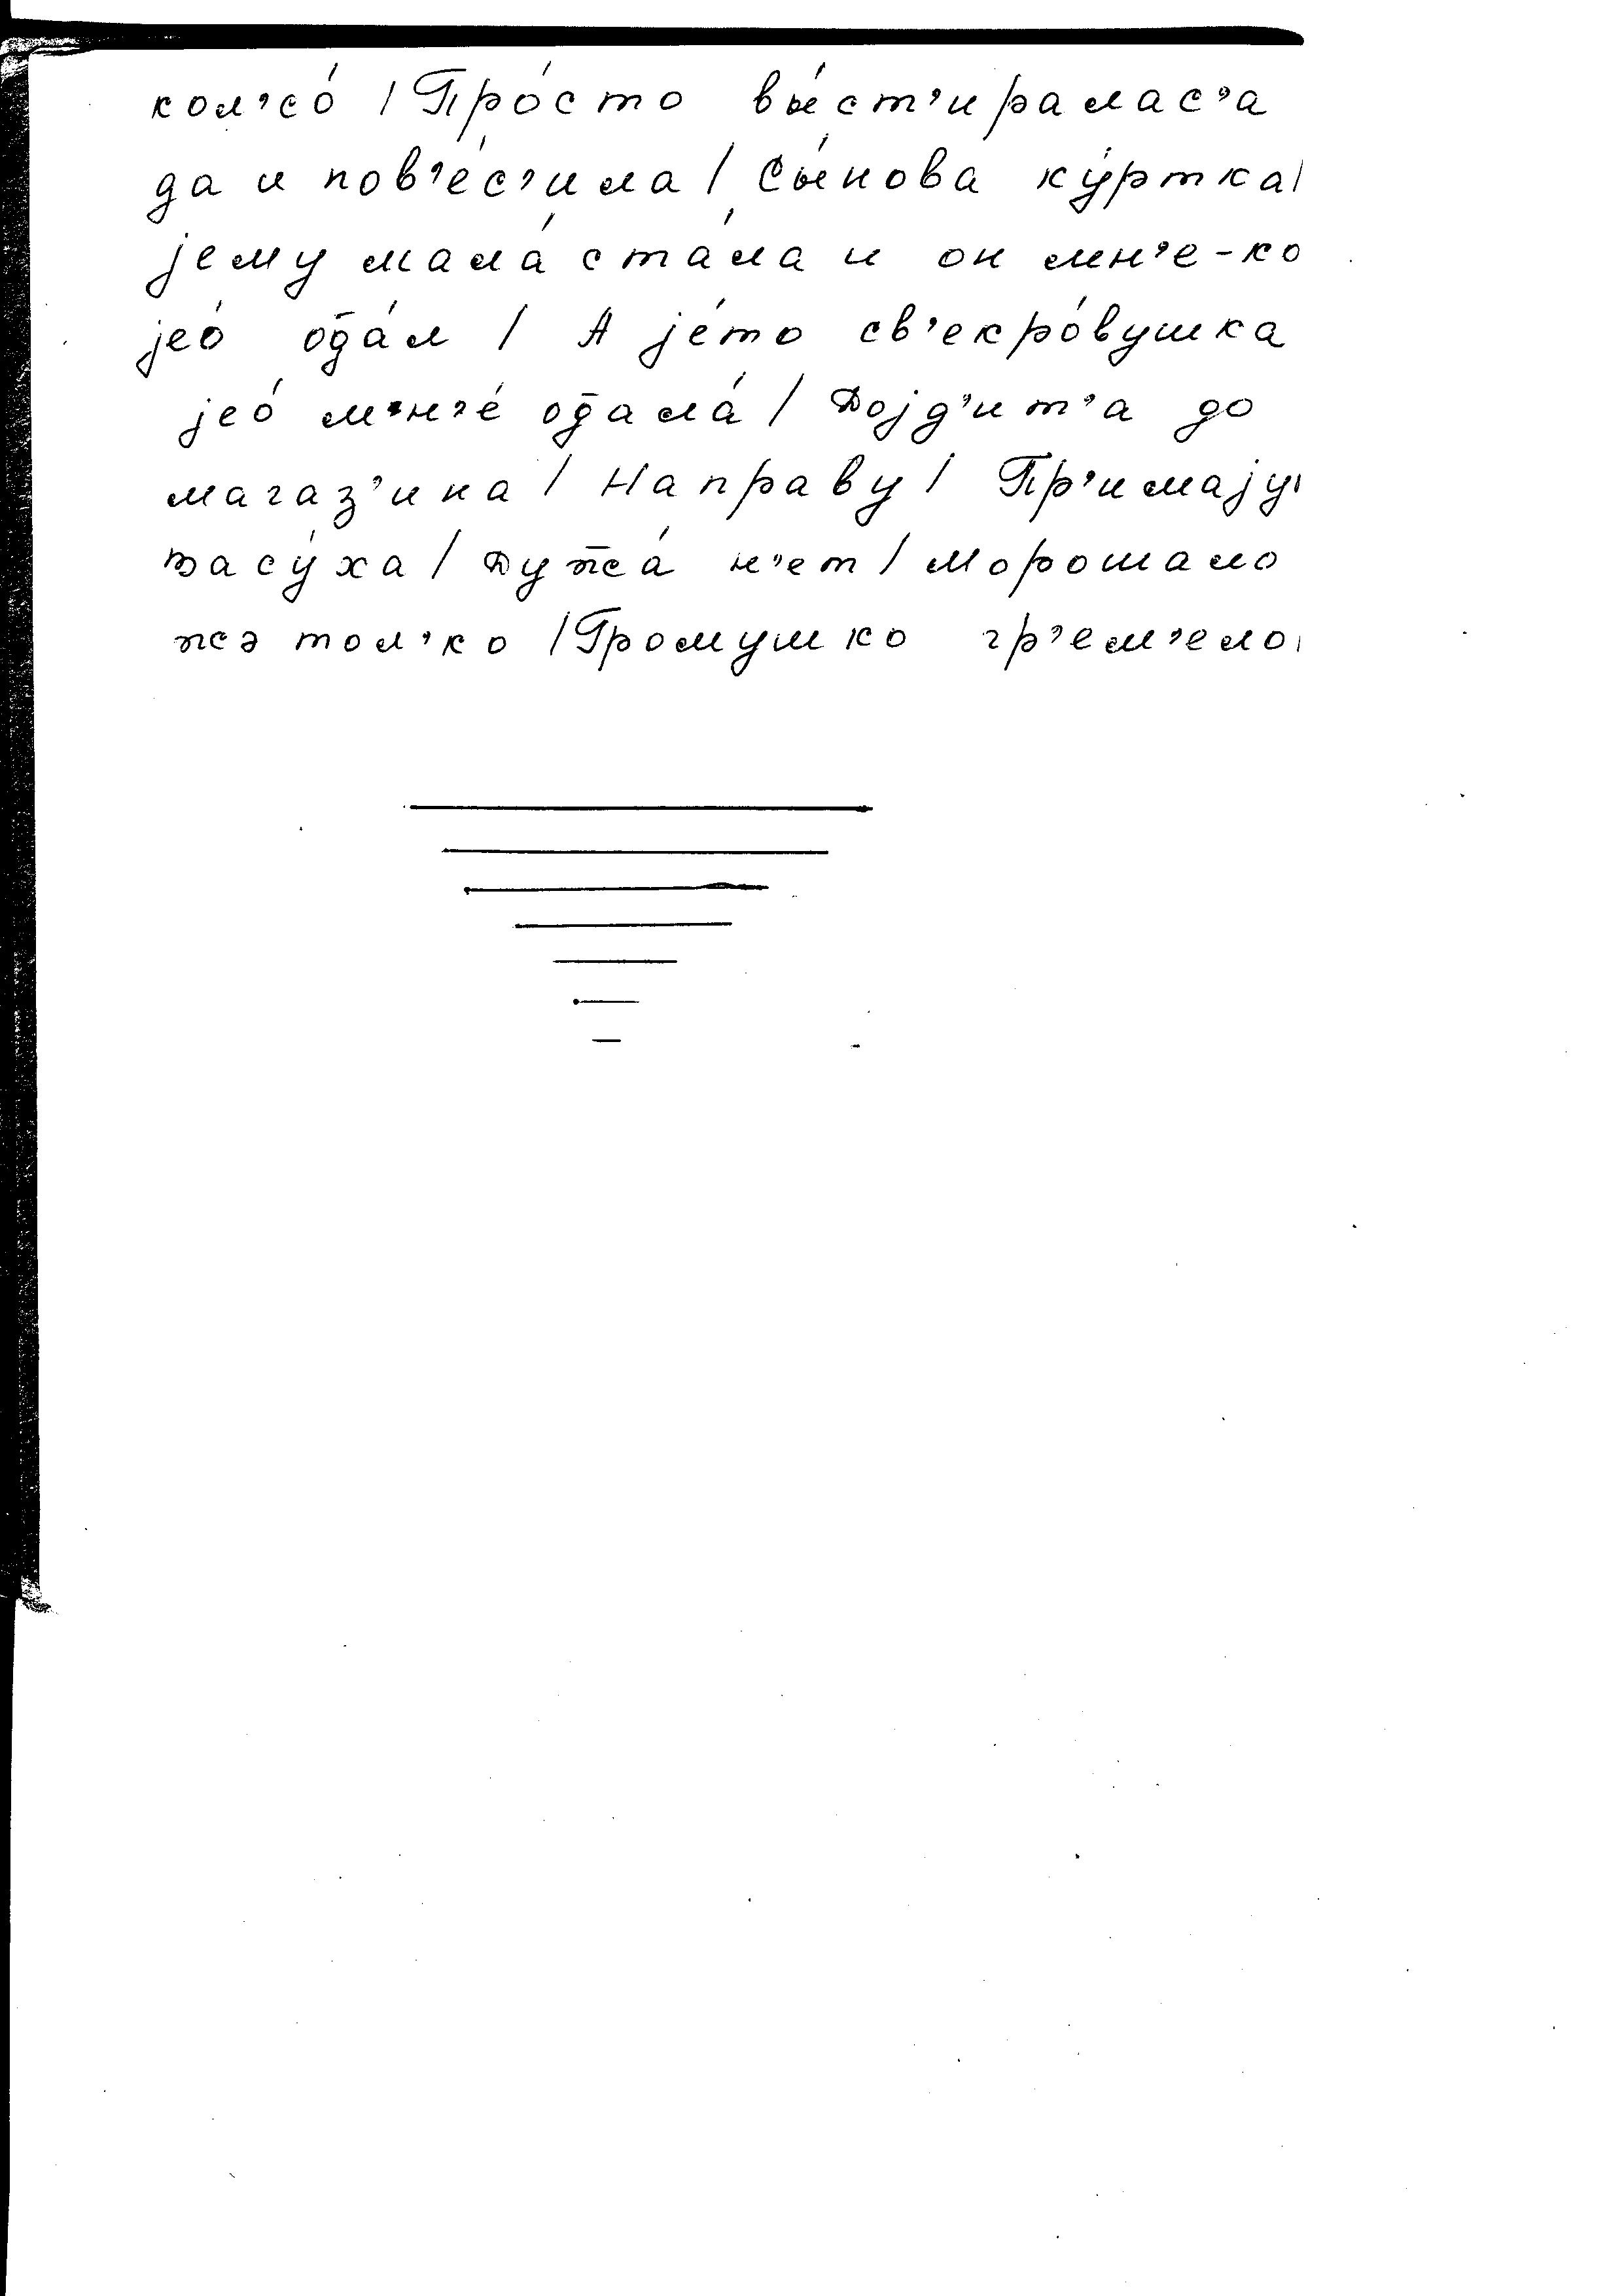 кол'со́ / Про́сто вы́ст'иралас'а
да и пов'е́с'ила / Сы́нова ку́ртка /
јему мала́ ста́ла и он мн'е-ко
јео́ од̅а́л / А је́то св'екро́вушка
јео́ м'н'е́ од̅ала́ / Дојд'ит'а до
магаз'ина / Направу / Пр'имају /
Засу́ха / Дуж̅а́ н'ет / Морошало
жэ тол'ко / Громушко гр'ем'ело /